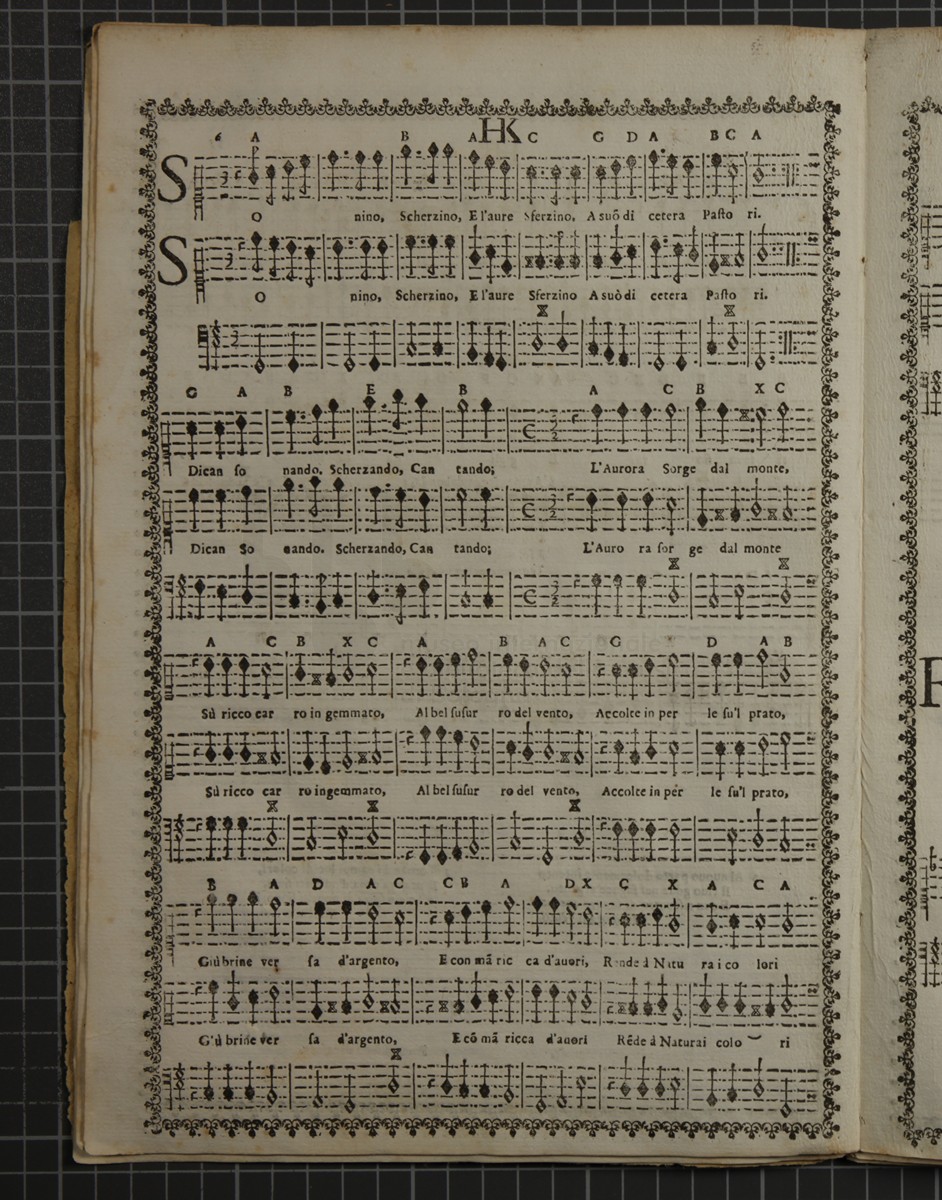 HK
6 A B A C G D A B C A
S
O nino, Scherzino, E l'aure Sferzino, A suõ di cetera Pasto ri.
S
O nino, Scherzino, E l'aure Sferzino A suò di cetera Pasto ri.
G A B E B A C B X C
Dican so nando. Scherzando, Can tando; L'Aurora Sorge dal monte,
Dican So nando. Scherzando, Can tando; L'Auro ra sor ge dal monte
A C B X C A B A C G D A B
Sù ricco car ro in gemmato, Al bel susur ro del vento, Accolte in per le su'l prato,
Sù ricco car ro ingemmato, Al bel susur ro del vento, Accolte in per le su'l prato,
B A D A C C B A D X C X A C A
Giù brine ver sa d'argento, E con mã ric ca d'auori, Rende à Natu ra i co lori
G'ù brine ver sa d'argento, E cõ mã ricca d'auori Rẽde à Natura i colo ri